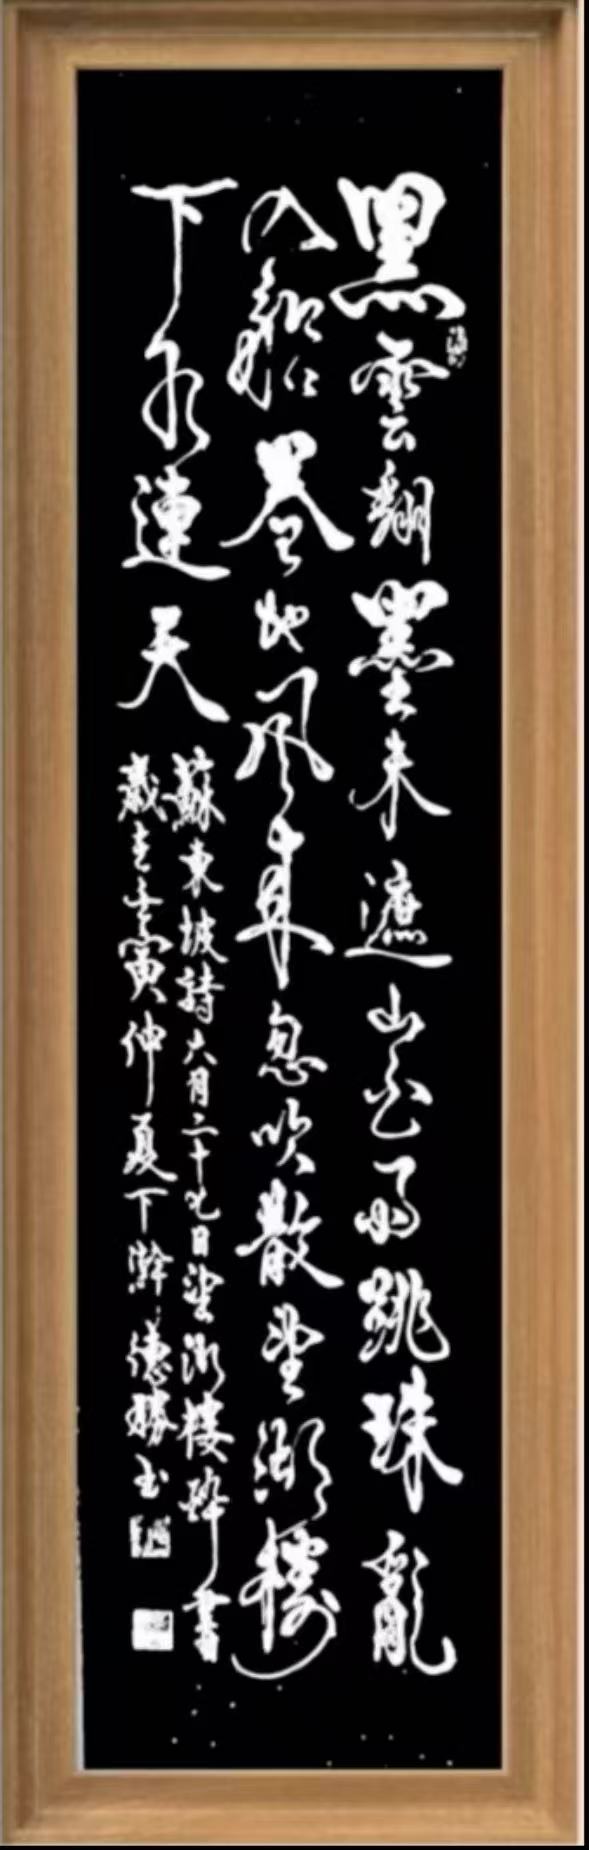 黑雲翻墨未遮山白雨跳珠亂
入船卷地風來忽吹散望湖樓
下水連天
蘇東坡詩六月二十七日望湖樓醉書
歲在壬寅仲夏下澣德勝书